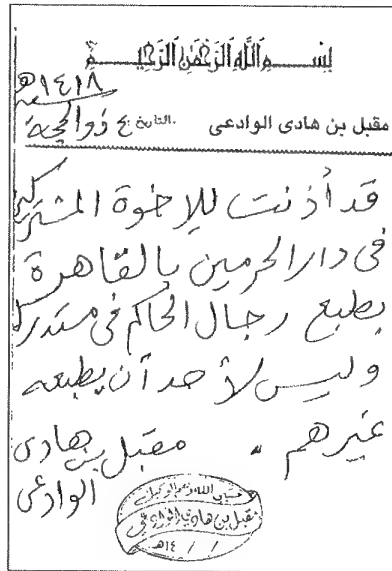 بِسْمِ اللَّهِ الرَّحْمَنِ الرَّحِيمِ
سنة ١٤١٨هـ
مقبل بن هادى الوادعى التاريخ ع ذوالحجة
قد أذنت للإخوة المشتركين
فى دار الحرمين بالقاهرة
بطبع رجال الحاكم فى مستدركه
وليس لأحد أن يطبعه
غيرهم . مقبل بن هادى
الوادعى
حسبي الله ونعم الوكيل
مقبل بن هادي الوادعي
/ / ١٤هـ